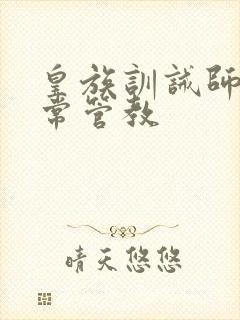 皇族訓誡師
常管教
晴天悠悠